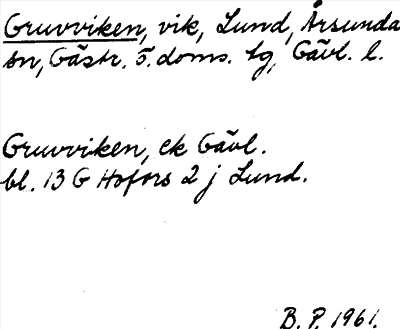 Gruvviken, vik, Lund, Årsunda
sn, Gästr. ö. doms. tg, Gävl. l.
Gruvviken, ek Gävl.
bl. 13 G Hofors 2 j Lund.
B. P. 1961.